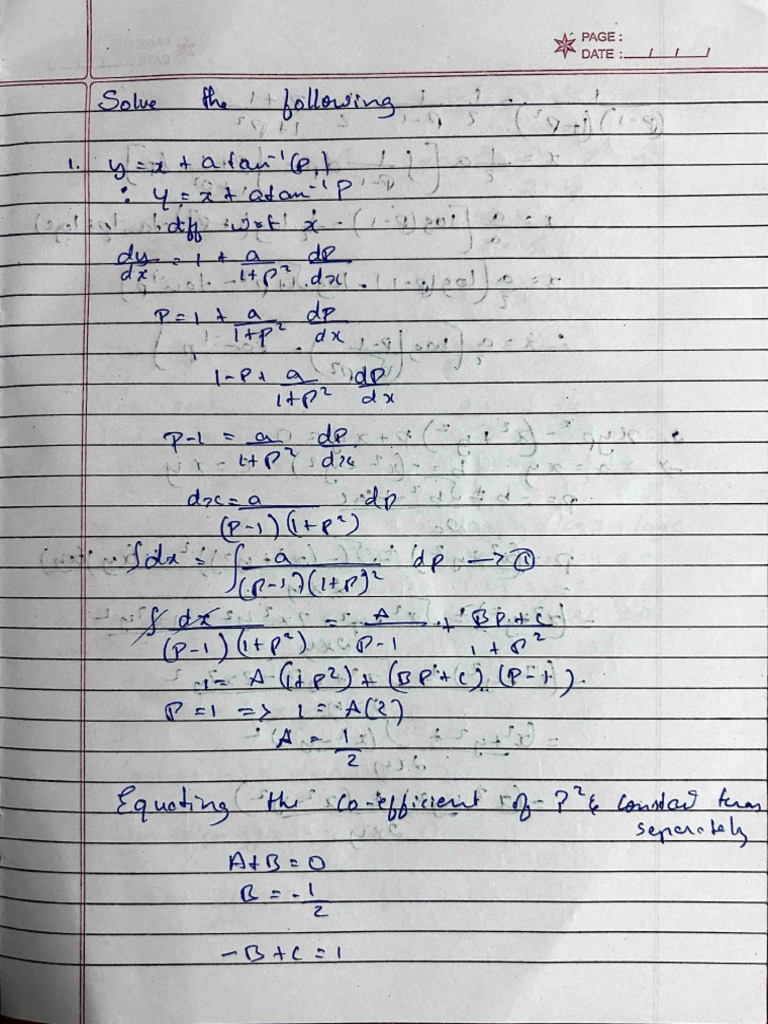 PAGE :
DATE : / / /
Solve the following
1. y = x + a tan⁻¹(P)
∴ y = x + a tan⁻¹ P
diff w.r.t x
dy/dx = 1 + a/(1+P²) dP/dx .
P = 1 + a/(1+P²) dP/dx
1-P+ a/(1+P²) dP/dx
P-1 = a/(1+P²) dP/dx
dx = a/((P-1)(1+P²)) dP
∫dx = ∫ a/((P-1)(1+P)²) dP →①
∫ dx/((P-1)(1+P²)) = A/(P-1) + (BP+C)/(1+P²)
1 = A(1+P²) + (BP+C)(P-1).
P = 1 => 1 = A(2)
A = 1/2
Equating the co-efficient of P² &
separately
A+B = 0
B = -1/2
-B+C = 1